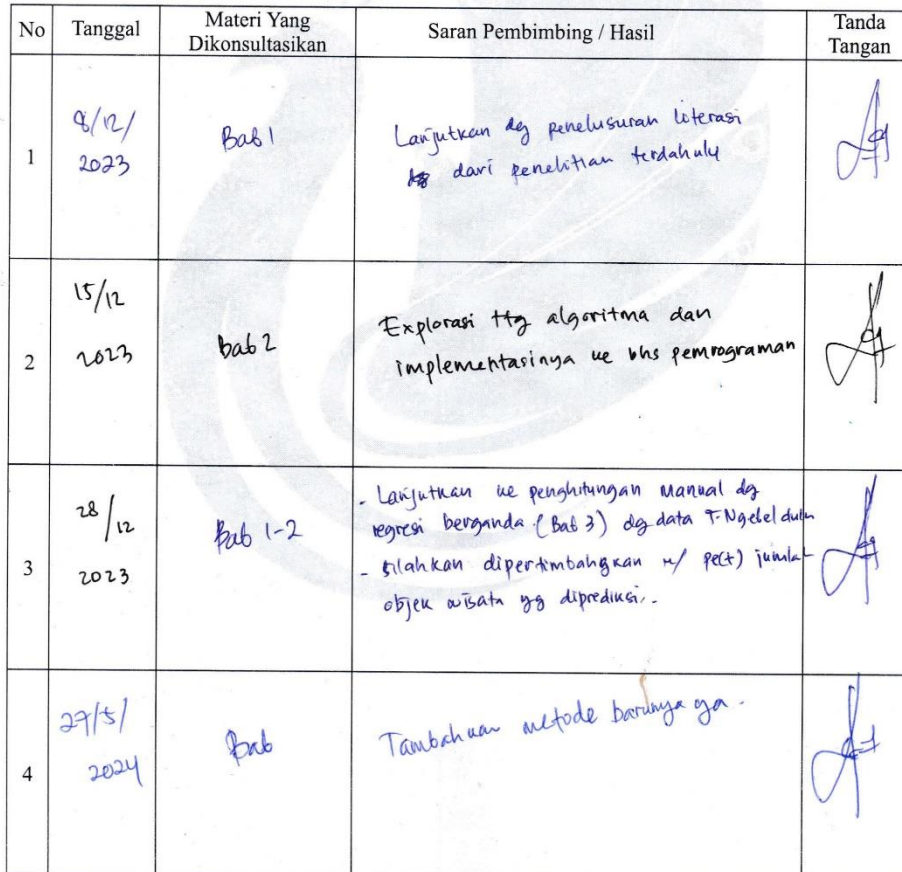 No Tanggal Materi Yang Dikonsultasikan Saran Pembimbing / Hasil Tanda Tangan
1
8/12/
2023
Bab 1
Lanjutkan dg penelusuran literasi
dari penelitian terdahulu
2
15/12
2023
bab 2
Explorasi ttg algoritma dan
implementasinya ke bhs pemrograman
3
28/12
2023
Bab 1-2
- Lanjutkan ke penghitungan manual dg
regresi berganda (Bab 3) dg data T. Ngebel dulu
- silahkan dipertimbangkan u/ pe(+) jumlah
objek wisata yg diprediksi.
4
27/5/
2024
Bab
Tambahkan metode barunya ya.